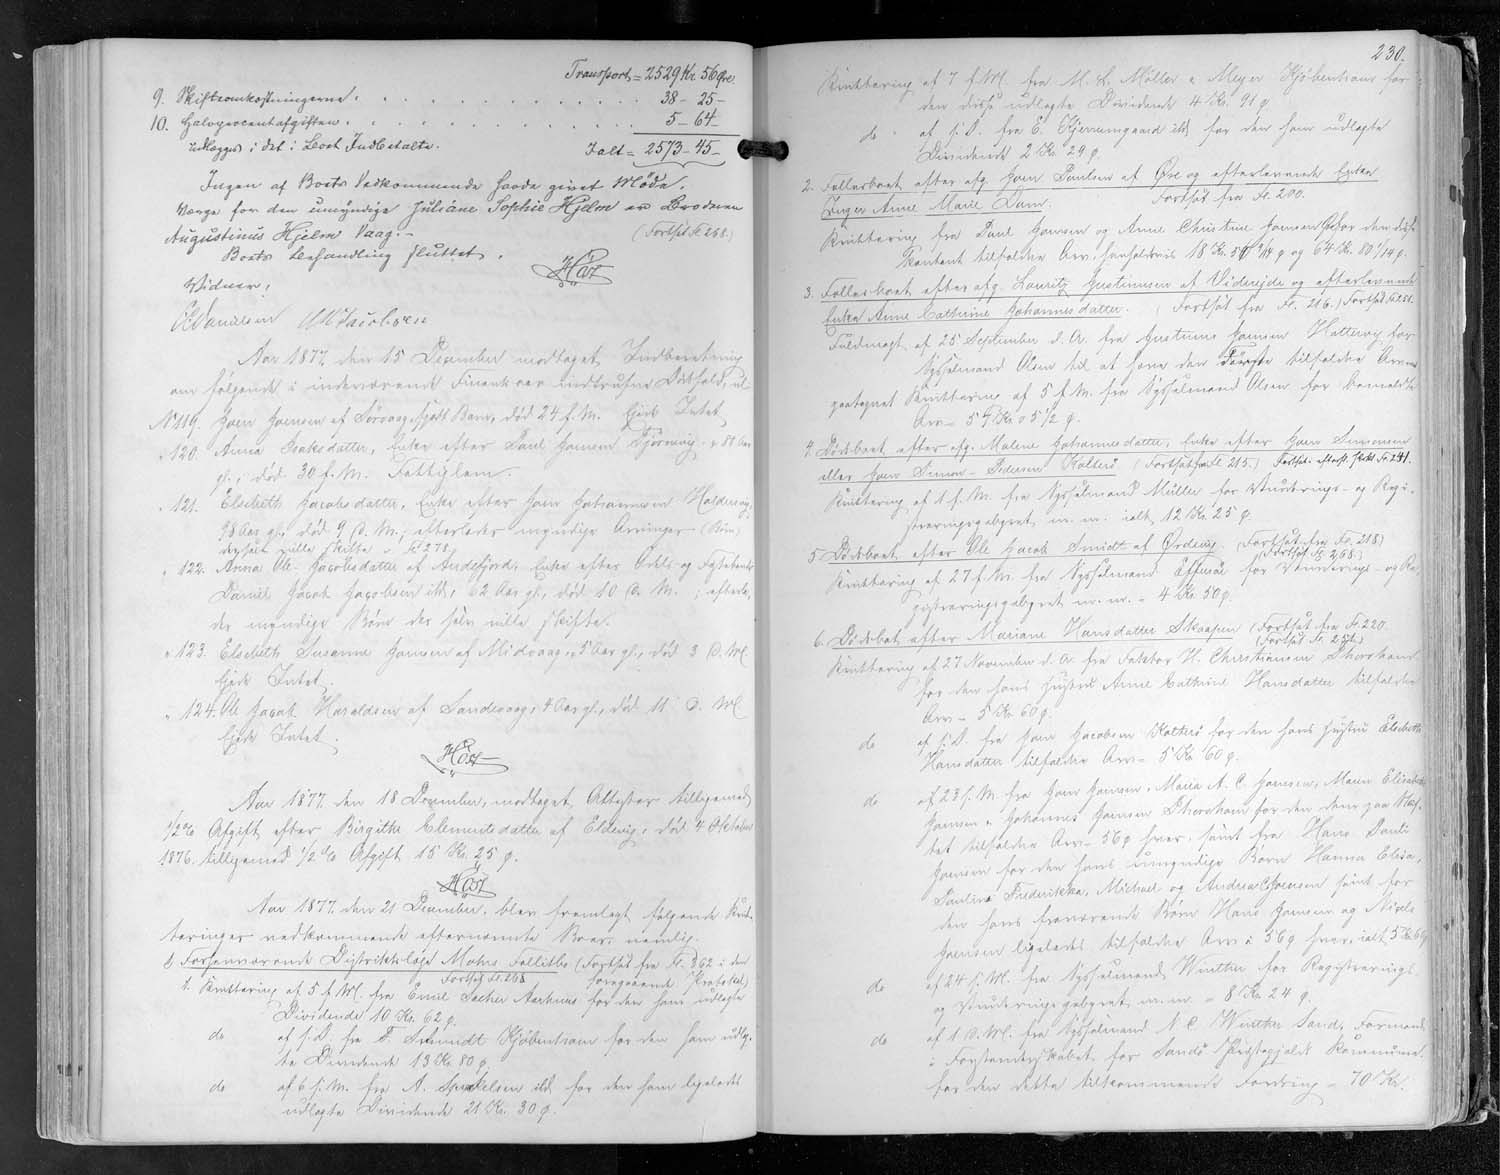 Transport = 2529 Kr. 56 Øre.
9. Skifteomkostningerne . . . 38 - 25 -
10. Halvprocentafgiften . . . 5 - 64 -
udlægges i det i Boet Indbetalte. Ialt = 2573 - 45 -
Ingen af Boets Vedkommende havde givet Møde.
Værge for den umyndige Juliane Sophie Hjelm er Broderen
Augustinus Hjelm Vaag. - (Fortsat Fr. 268.)
Boets Behandling sluttet.
Høst
Vidner:
Danielsen Jacobsen
Aar 1877 den 15 December modtaget Indberetning
om følgende i indeværende Finantsaar indtrufne Dødsfald,
No 119. Joen Joensen af Sørvaag, født Barn, død 24 f. M. Ejede Intet
" 120. Anna Isaksdatter, Enke efter Poul Joensen Gjørevig, 88 Aar
gl., død 30 f. M. Fattiglem.
" 121. Elsebeth Jacobsdatter, Enke efter Joen Johannesen Haldersvig,
78 Aar gl., død 9 d. M., efterlader myndige Arvinger (Børn)
der selv ville skifte v. Fr. 278.
" 122. Anna Ol. Jacobsdatter af Andefjord, Enke efter Odels- og Fæstebonde
Daniel Jacob Jacobsen ibd., 62 Aar gl., død 10 d. M.; efterla-
der myndige Børn der selv ville skifte.
" 123. Elsebeth Susanna Joensen af Midvaag, 5 Aar gl., død 3 d. M.
Ejede Intet.
" 124. Ole Jacob Haraldsen af Sandevaag, 4 Aar gl., død 11 d. M.
Ejede Intet.
Høst
Aar 1877 den 18 December, modtaget Attester tilligemed
1/2 % Afgift efter Birgithe Clementsdatter af Eldevig, død 4 Oktober
1876. tilligemed 1/2 % Afgift 15 Kr. 25 ø.
Høst
Aar 1877 den 21 December, blev fremlagt følgende Kvit-
teringer vedkommende efternævnte Boer, nemlig:
1 Forhenværende Distriktslæge Mohrs Fallitbo (Fortsat fra Fr. 362 i den
Fortsat Fr. 268 foregaaende Protokol)
1. Kvittering af 5 f. M. fra Emil Secher Aarhuus for den ham udlagte
Dividende 10 Kr. 62 ø.
do af s. D. fra F. Schmidt Kjøbenhavn for den ham udlag-
te Dividende 13 Kr. 80 ø.
do af 6 s. M. fra A. ibd. for den ham ligeledes
udlagte Dividende 21 Kr. 30 ø.
230.
Kvittering af 7 f. M. fra M. L. Møller & Meyer Kjøbenhavn for
den disse udlagte Dividende 4 Kr. 91 ø
do af s. D. fra E. Kjerrumgaard ibd. for den ham udlagte
Dividende 2 Kr. 29 ø.
2. Fællesboet efter afg. Joen Poulsen af Øre og efterlevende Enke
Inger Anne Marie Dam. Fortsat fra Fr. 200.
Kvittering fra Poul Joensen og Anne Christine Joensen for den disse
kontant tilfaldne Arv henholdsvis 18 Kr. og 64 Kr. 80 1/14 ø.
3. Fællesboet efter afg. Lauritz Gustinussen af Viderejde og efterlevende
Enke Anne Cathrine Johannesdatter. (Fortsat fra Fr. 216.) Fortsat Fr. 251.
Fuldmagt af 25 September d. A. fra Gustinus Joensen Hattervig for
Sysselmand Olsen til at hæve den Første tilfaldne Arv med
paategnet Kvittering af 5 f. M. fra Sysselmand Olsen for bemeldte
Arv = 5 1/2 ø.
4. Dødsboet efter afg. Malene Johannesdatter, Enke efter Joen Simonsen
eller Joen Simon Pedersen Kolterø (Fortsat fra Fr. 215.) Fortsat Fr. 241.
Kvittering af 1 f. M. fra Sysselmand Müller for Vurderings- og Regi-
streringsgebyret m. m. ialt 12 Kr. 25 ø.
5 Dødsboet efter Ole Jacob Smidt af Ørdevig. (Fortsat fra Fr. 218)
(Fortsat Fr. 268.)
Kvittering af 27 f. M. fra Sysselmand Effersøe for Vurderings- og Re-
gistreringsgebyret m. m. = 4 Kr. 50 ø.
6. Dødsboet efter Mariane Hansdatter Skaapen (Fortsat fra Fr. 220.
(Fortsat Fr. 257.)
Kvittering af 27 November d. A. fra Faktor H. Christiansen Thorshavn
for den hans Hustru Anne Cathrine Hansdatter tilfaldne
Arv = 5 Kr 60 ø.
do af s. D. fra Joen Jacobsen Kolterø for den hans Hustru Elsebeth
Hansdatter tilfaldne Arv = 5 Kr 60 ø.
do af 23 s. M. fra Joen Joensen, Maria A. C. Joensen, Maren Elisabeth
Joensen & Johannes Joensen Thorshavn for den dem paa Skif-
tet tilfaldne Arv = 56 ø hver, samt fra Hans Pauli
Joensen for den hans umyndige Børn Hanna Elisa,
Pauline Frederikka, Michael og Andrea Joensen samt for
den hans fraværende Børn Hans Joensen og Niels
Joensen ligeledes tilfaldne Arv à 56 ø hver, ialt 5 Kr 60 ø
do af 24 s. M. fra Sysselmand Winther for Registrerings-
og Vurderingsgebyret m. m. = 8 Kr. 24 ø.
do af 1 d. M. fra Sysselmand N. C. Winther Sand, Formand
i Forstanderskabet for Sandø Præstegjælds Kommune,
for den dette tilkommende Fordring = 70 Kr.